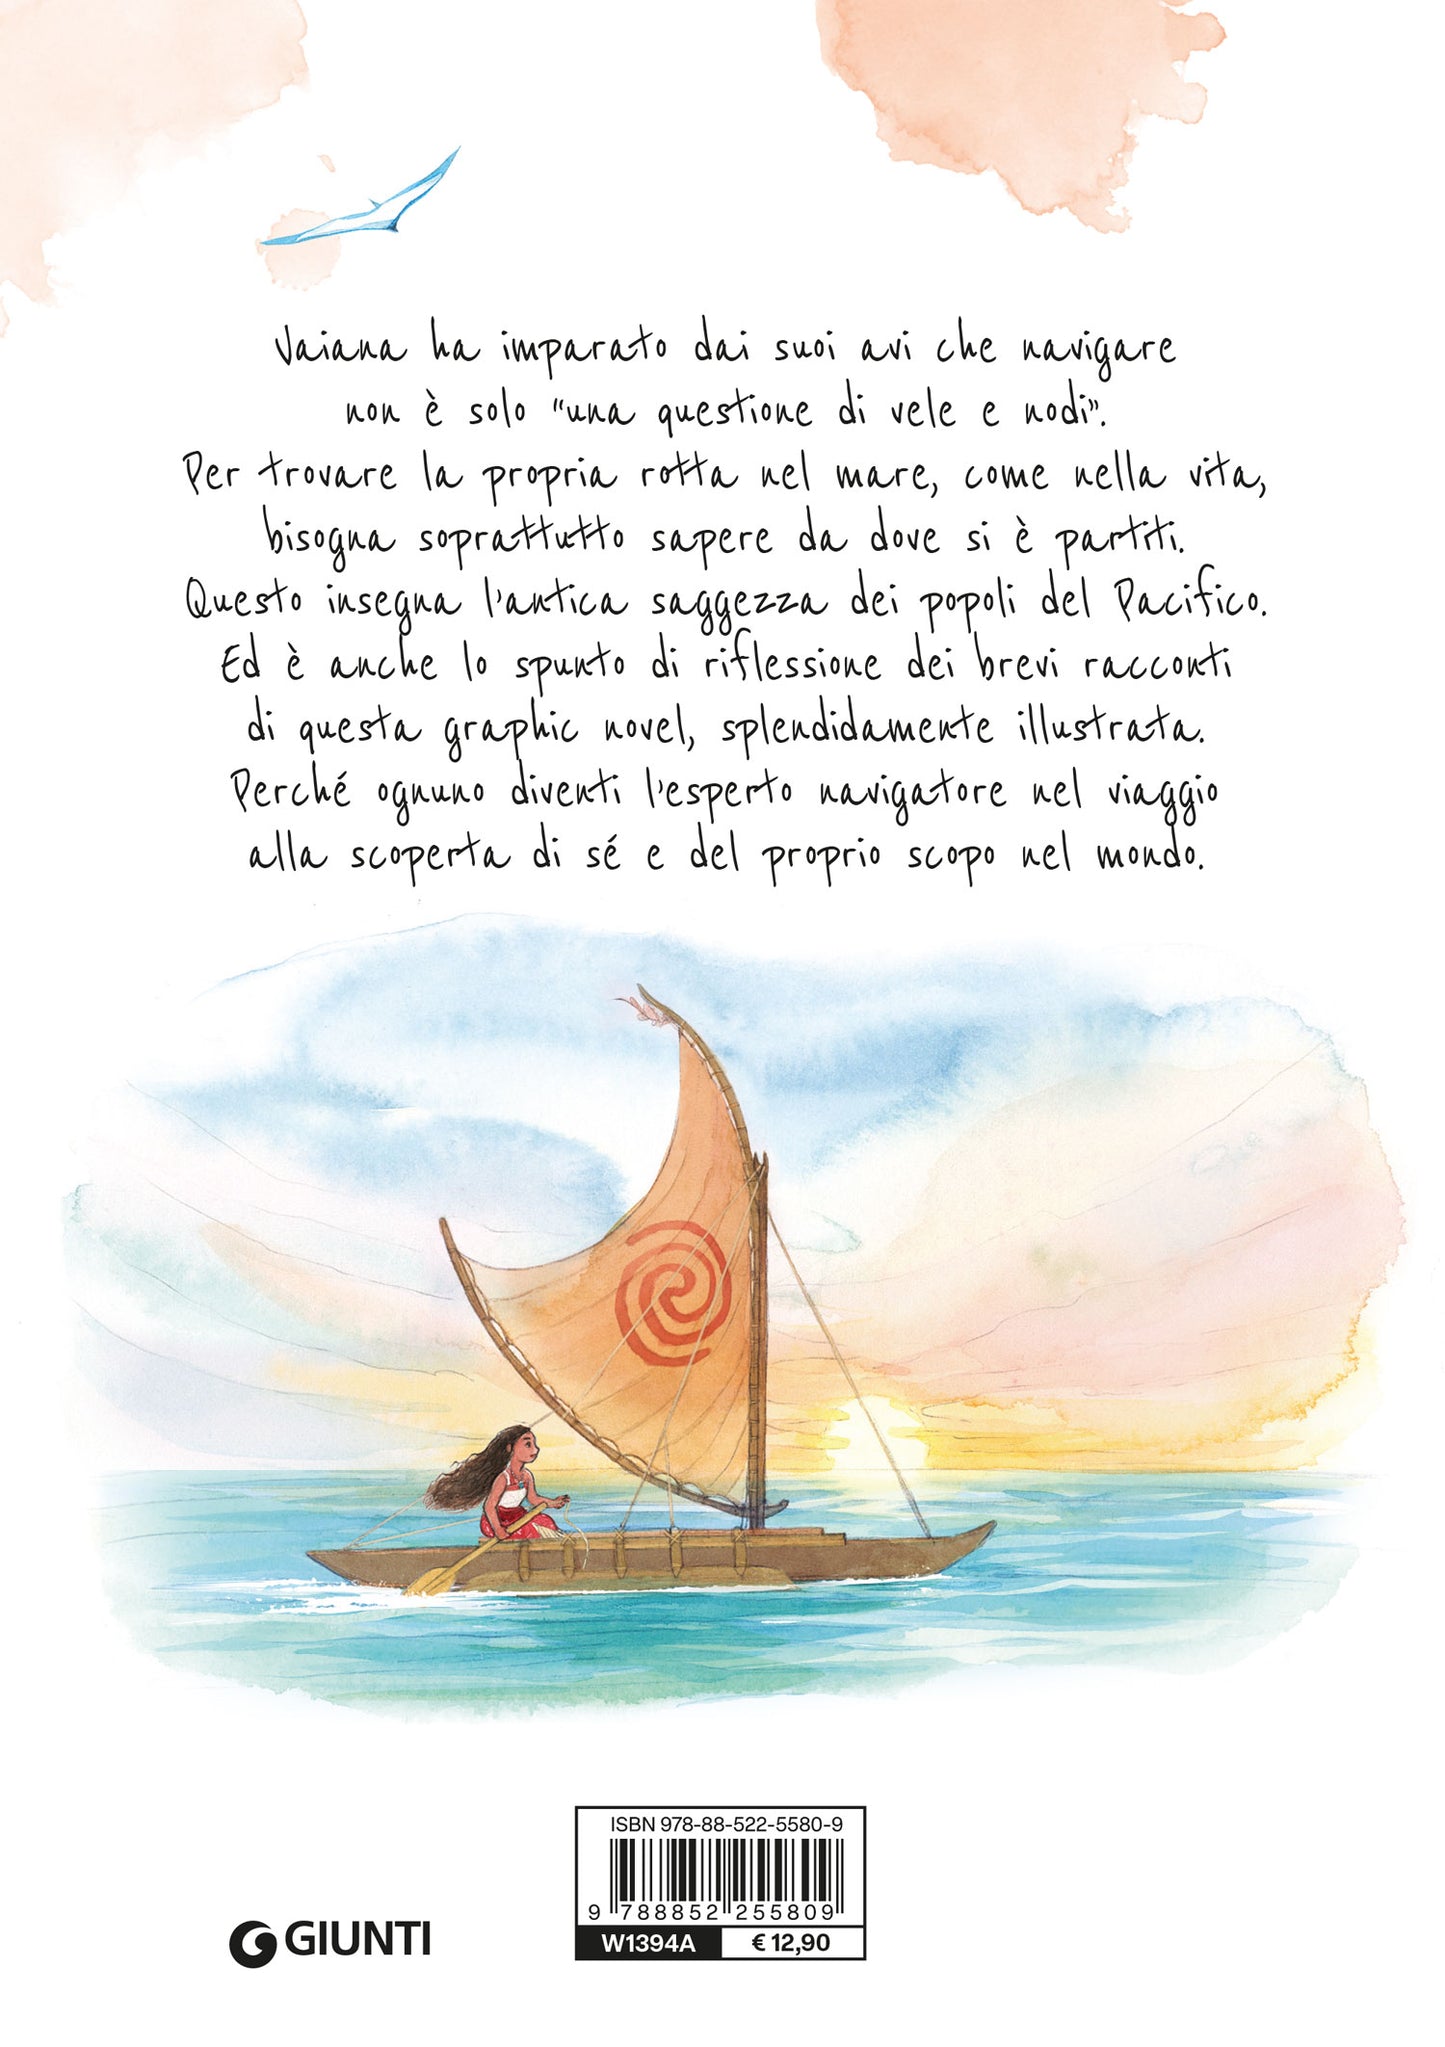 Vaiana ha imparato dai suoi avi che navigare
non è solo “una questione di vele e nodi”.
Per trovare la propria rotta nel mare, come nella vita,
bisogna soprattutto sapere da dove si è partiti.
Questo insegna l'antica saggezza dei popoli del Pacifico.
Ed è anche lo spunto di riflessione dei brevi racconti
di questa graphic novel, splendidamente illustrata.
Perché ognuno diventi l'esperto navigatore nel viaggio
alla scoperta di sé e del proprio scopo nel mondo.
ISBN 978-88-522-5580-9
9 788852 255809
W1394A € 12,90
GIUNTI